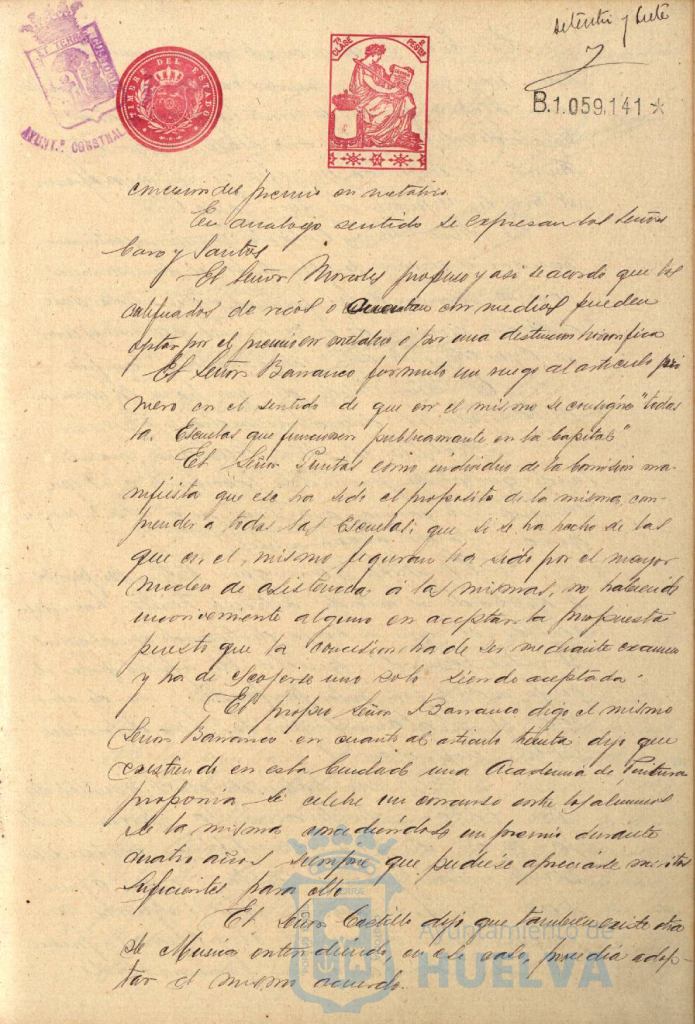 setenta y siete
AYUNT.º CONSTNAL
TIMBRE DEL ESTADO
7ª CLASE
2 PESETAS
B.1.059,141 *
concesion del premio en metalico
En analogo sentido se expresan los Señores
Caro y Santos
El Señor Morales propuso y asi se acordo que los
calificados de ricos o cuenten con medios pueden
optar por el premio en metalico ó por una distincion honorifica
El Señor Barranco formulo un ruego al articulo pri
mero en el sentido de que en el mismo se consigne "todas
las Escuelas que funcionen publicamente en la Capital"
El Señor como individuo de la Comision ma-
nifiesta que ese ha sido el proposito de la misma, com-
prender a todas las Escuelas; que si se ha hecho de las
que en el mismo figuran ha sido por el mayor
numero de asistencia á las mismas, no habiendo
inconveniente alguno en aceptar la propuesta
puesto que la concesion ha de ser mediante examen
y ha de escojerse uno solo siendo aceptada.
El propio Señor Barranco digo el mismo
Señor Barranco en cuanto al articulo dijo que
existiendo en esta Ciudad una Academia de Pintura
proponia se celebre un concurso entre los alumnos
de la misma concediendose un premio durante
cuatro años siempre que pudiese apreciarse meritos
suficientes para ello
El Señor Castillo dijo que tambien existe otra
de Musica entendiendo, en ese caso, procedia adop-
tar el mismo acuerdo.
Ayuntamiento de
HUELVA